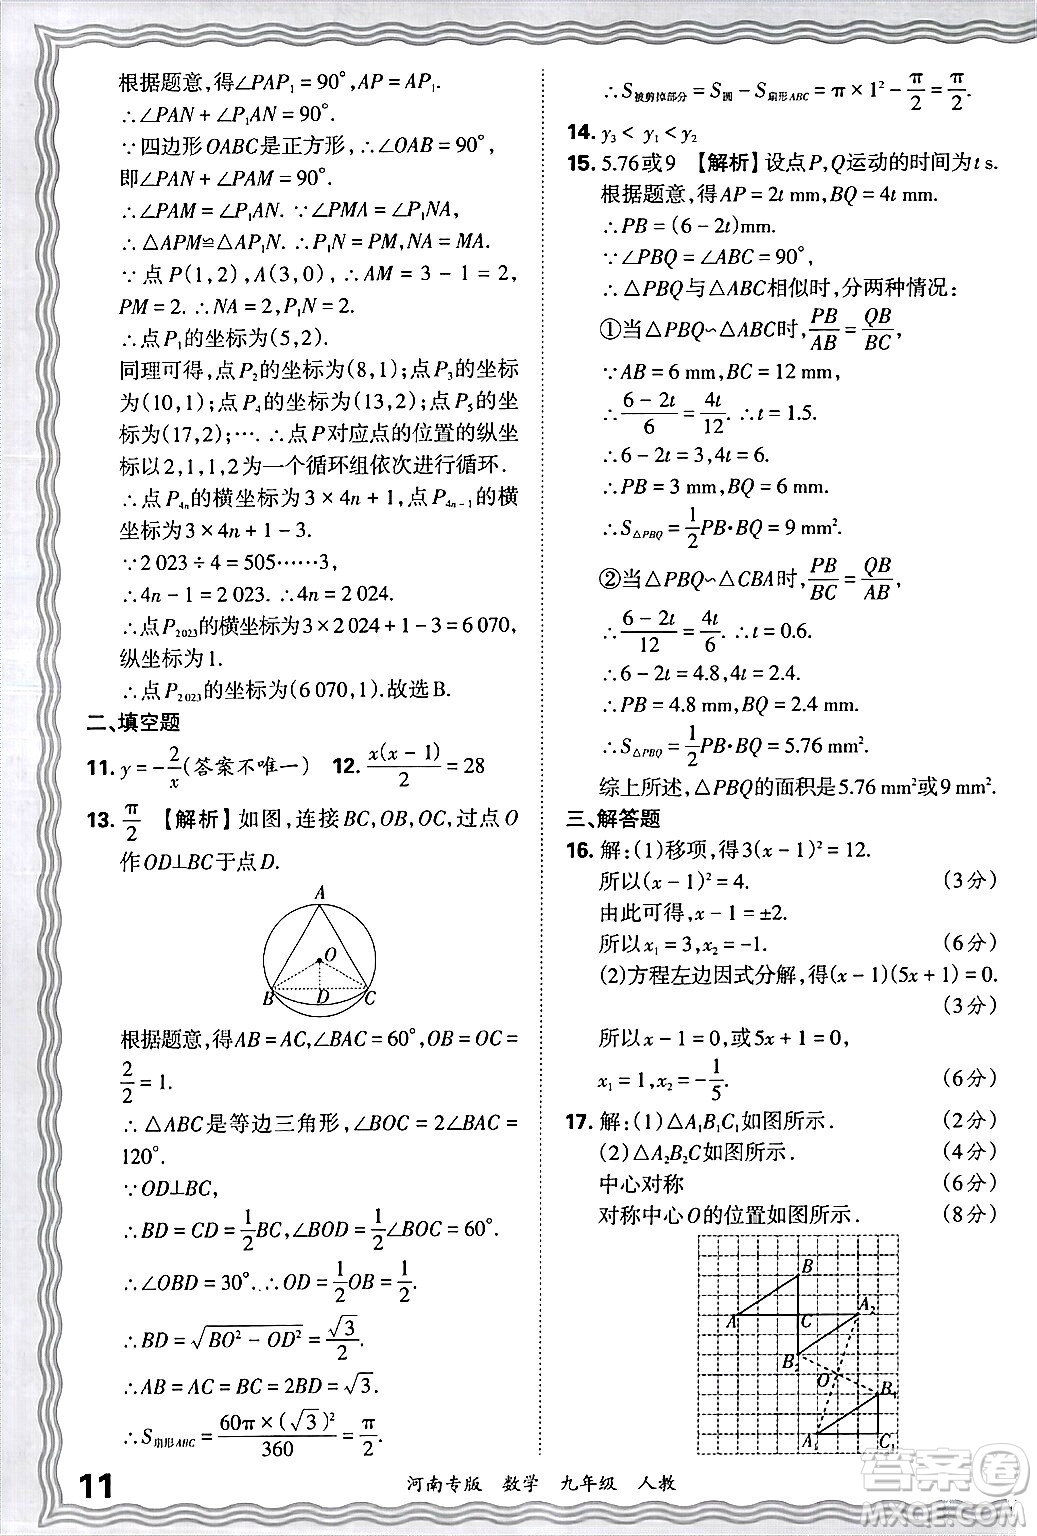 根据题意,得∠PAP₁=90°,AP=AP₁.
∴∠PAN+∠P₁AN=90°.
∵四边形OABC是正方形,∴∠OAB=90°,
即∠PAN+∠PAM=90°.
∴∠PAM=∠P₁AN.∵∠PMA=∠P₁NA,
∴△APM≌△AP₁N.∴P₁N=PM,NA=MA.
∵点P(1,2),A(3,0),∴AM=3-1=2,
PM=2.∴NA=2,P₁N=2.
∴点P₁的坐标为(5,2).
同理可得,点P₂的坐标为(8,1);点P₃的坐标
为(10,1);点P₄的坐标为(13,2);点P₅的坐
标为(17,2);….∴点P对应点的位置的纵坐
标以2,1,1,2为一个循环组依次进行循环.
∴点P₄ₙ的横坐标为3×4n+1,点P₄ₙ₋₁的横
坐标为3×4n+1-3.
∵2 023÷4=505……3,
∴4n-1=2 023.∴4n=2 024.
∴点P₂ ₀₂₃的横坐标为3×2 024+1-3=6 070,
纵坐标为1.
∴点P₂ ₀₂₃的坐标为(6 070,1).故选B.
二、填空题
11. y=-2/x(答案不唯一) 12. x(x-1)/2=28
13. π/2 【解析】如图,连接BC,OB,OC,过点O
作OD⊥BC于点D.
A
O
B D C
根据题意,得AB=AC,∠BAC=60°,OB=OC=
2/2=1.
∴△ABC是等边三角形,∠BOC=2∠BAC=
120°.
∵OD⊥BC,
∴BD=CD=1/2BC,∠BOD=1/2∠BOC=60°.
∴∠OBD=30°.∴OD=1/2OB=1/2.
∴BD=√(BO²-OD²)=√3/2.
∴AB=AC=BC=2BD=√3.
∴S扇形ABC=60π×(√3)²/360=π/2.
∴S被剪掉部分=S圆-S扇形ABC=π×1²-π/2=π/2.
14. y₃<y₁<y₂
15. 5.76或9 【解析】设点P,Q运动的时间为t s.
根据题意,得AP=2t mm,BQ=4t mm.
∴PB=(6-2t)mm.
∵∠PBQ=∠ABC=90°,
∴△PBQ与△ABC相似时,分两种情况:
①当△PBQ∽△ABC时,PB/AB=QB/BC,
∵AB=6 mm,BC=12 mm,
∴(6-2t)/6=4t/12.∴t=1.5.
∴6-2t=3,4t=6.
∴PB=3 mm,BQ=6 mm.
∴S△PBQ=1/2PB·BQ=9 mm².
②当△PBQ∽△CBA时,PB/BC=QB/AB,
∴(6-2t)/12=4t/6.∴t=0.6.
∴6-2t=4.8,4t=2.4.
∴PB=4.8 mm,BQ=2.4 mm.
∴S△PBQ=1/2PB·BQ=5.76 mm².
综上所述,△PBQ的面积是5.76 mm²或9 mm².
三、解答题
16. 解:(1)移项,得3(x-1)²=12.
所以(x-1)²=4. (3分)
由此可得,x-1=±2.
所以x₁=3,x₂=-1. (6分)
(2)方程左边因式分解,得(x-1)(5x+1)=0.
(3分)
所以x-1=0,或5x+1=0,
x₁=1,x₂=-1/5. (6分)
17. 解:(1)△A₁B₁C₁如图所示. (2分)
(2)△A₂B₂C如图所示. (4分)
中心对称 (6分)
对称中心O的位置如图所示. (8分)
B
A C A₂
B₂
O B₁
A₁ C₁
11 河南专版 数学 九年级 人教
答案圈
MXQE.COM